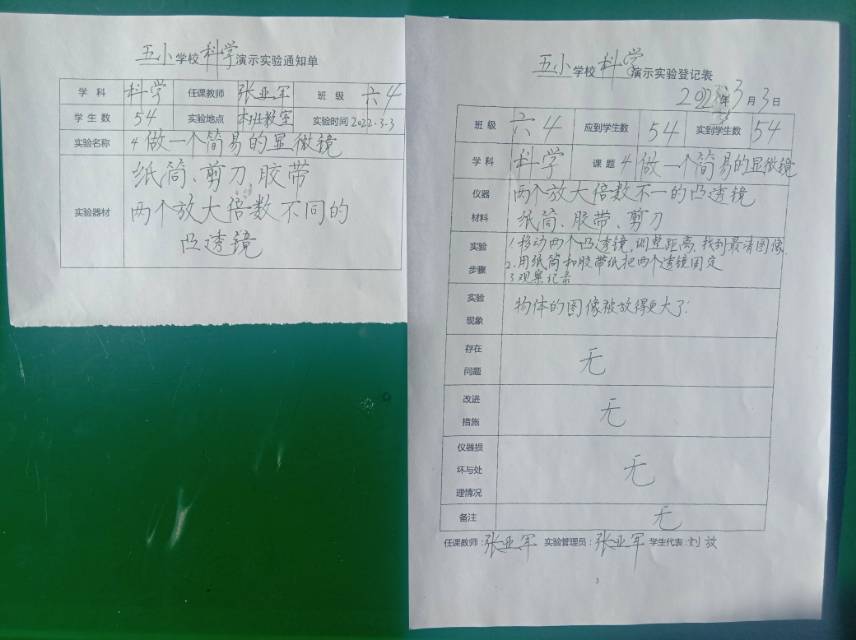 五小学校科学演示实验通知单
学 科 科学 任课教师 张亚军 班 级 六4
学 生 数 54 实验地点 本班教室 实验时间 2022.3.3
实验名称 4 做一个简易的显微镜
实验器材 纸筒、剪刀、胶带
两个放大倍数不同的
凸透镜
五小学校科学演示实验登记表
2022年3月3日
班 级 六4 应到学生数 54 实到学生数 54
学 科 科学 课 题 4 做一个简易的显微镜
仪器材料 两个放大倍数不一的凸透镜
纸筒、胶带、剪刀
实验步骤 1.移动两个凸透镜,调整距离,找到最清图像.
2.用纸筒和胶带纸把两个透镜固定
3.观察记录
实验现象 物体的图像被放得更大了.
存在问题 无
改进措施 无
仪器损坏与处理情况 无
备注 无
任课教师:张亚军 实验管理员:张亚军 学生代表:刘放